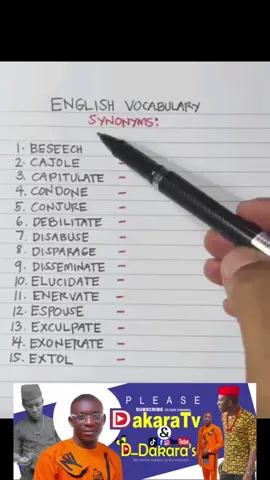 ENGLISH VOCABULARY
SYNONYMS:
1. BESEECH
2. CAJOLE -
3. CAPITULATE -
4. CONDONE -
5. CONJURE -
6. DEBILITATE -
7. DISABUSE -
8. DISPARAGE -
9. DISSEMINATE -
10. ELUCIDATE -
11. ENERVATE -
12. ESPOUSE -
13. EXCULPATE -
14. EXONERATE -
15. EXTOL -
PLEASE
SUBSCRIBE TO OUR CHANNEL
DakaraTv
&
D_Dakara's